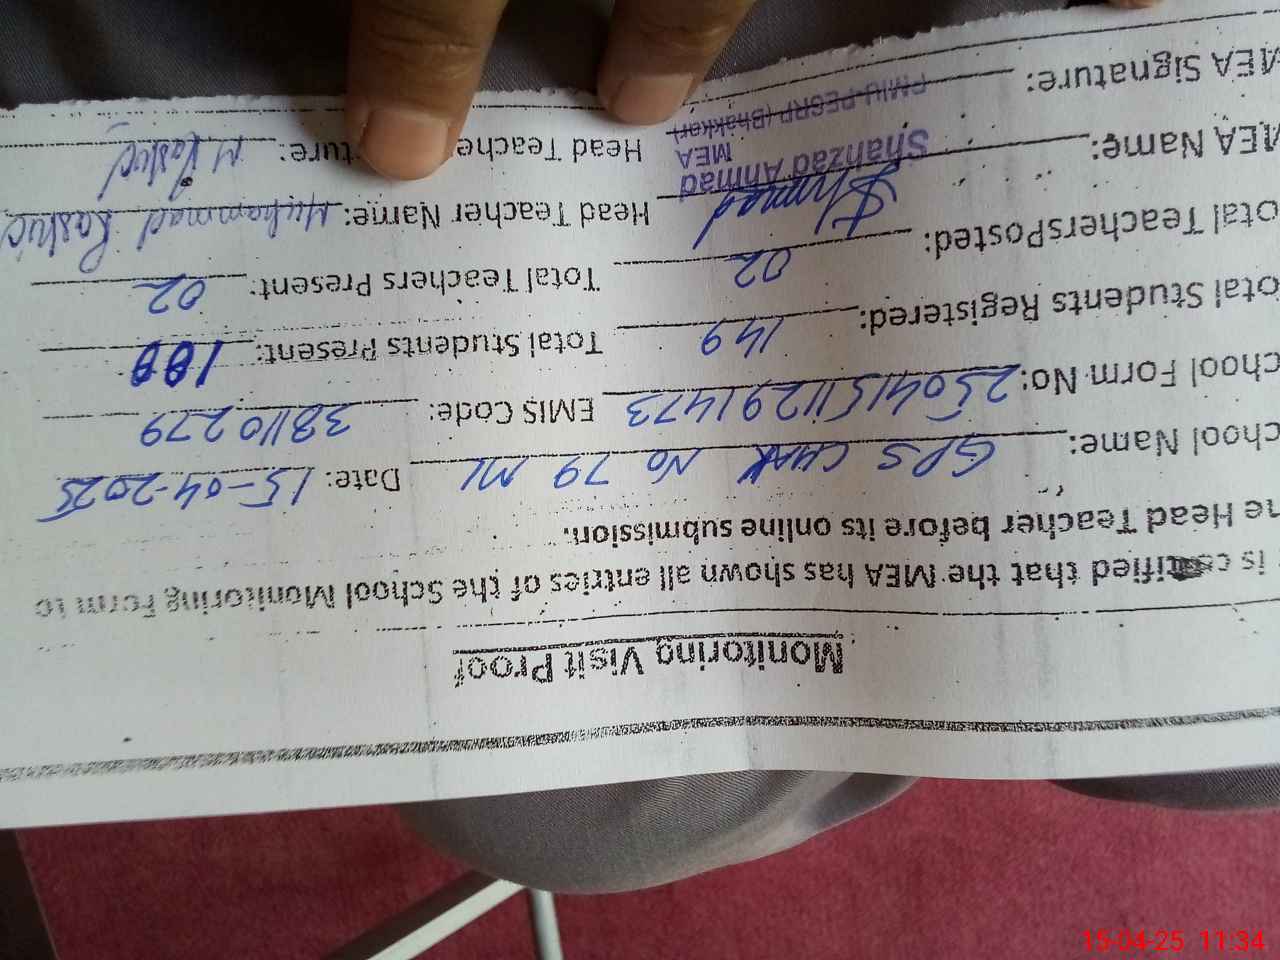 Monitoring Visit Proof
is certified that the MEA has shown all entries of the School Monitoring Form to
he Head Teacher before its online submission.
chool Name: GPS CHAK No 79 ML Date: 15-04-2025
chool Form No: 25041511291473 EMIS Code: 38110279
otal Students Registered: 149 Total Students Present: 100
otal TeachersPosted: 02 Total Teachers Present: 02
MEA Name: Shahzad Ahmad Head Teacher Name: Muhammad
MEA
PMIU-PESRP (Bhakkar)
MEA Signature: Head Teache ture: M
15-04-25 11:34